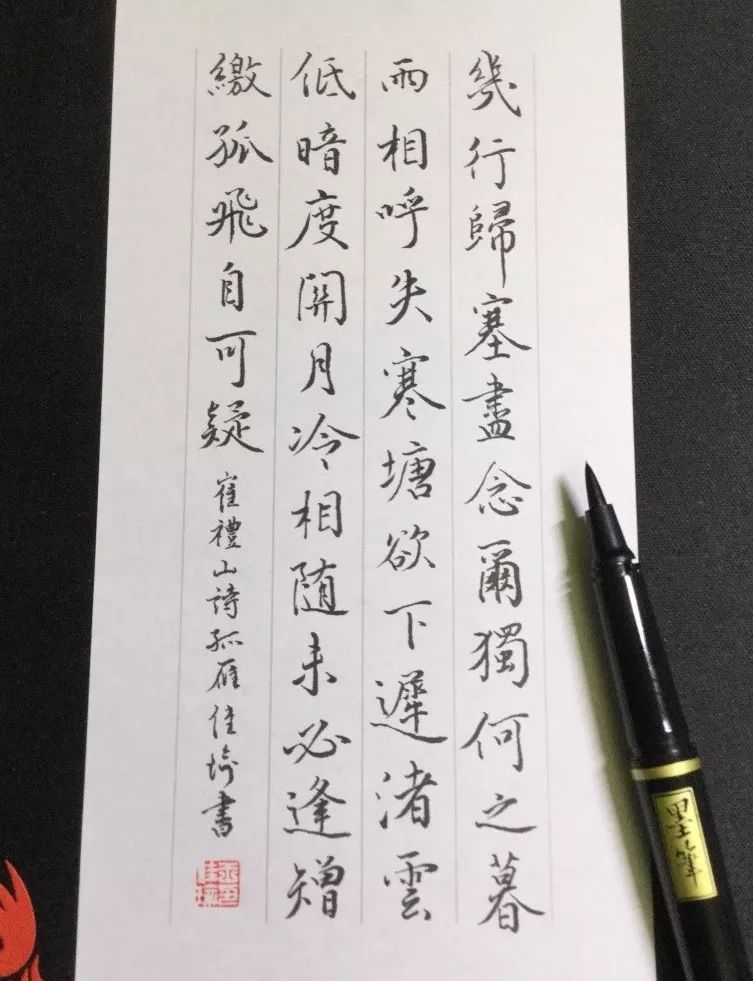 幾行歸塞盡念爾獨何之暮
雨相呼失寒塘欲下遲渚雲
低暗度関月冷相随未必逢矰
繳孤飛自可疑崔禮山詩孤雁佳埼書
墨筆